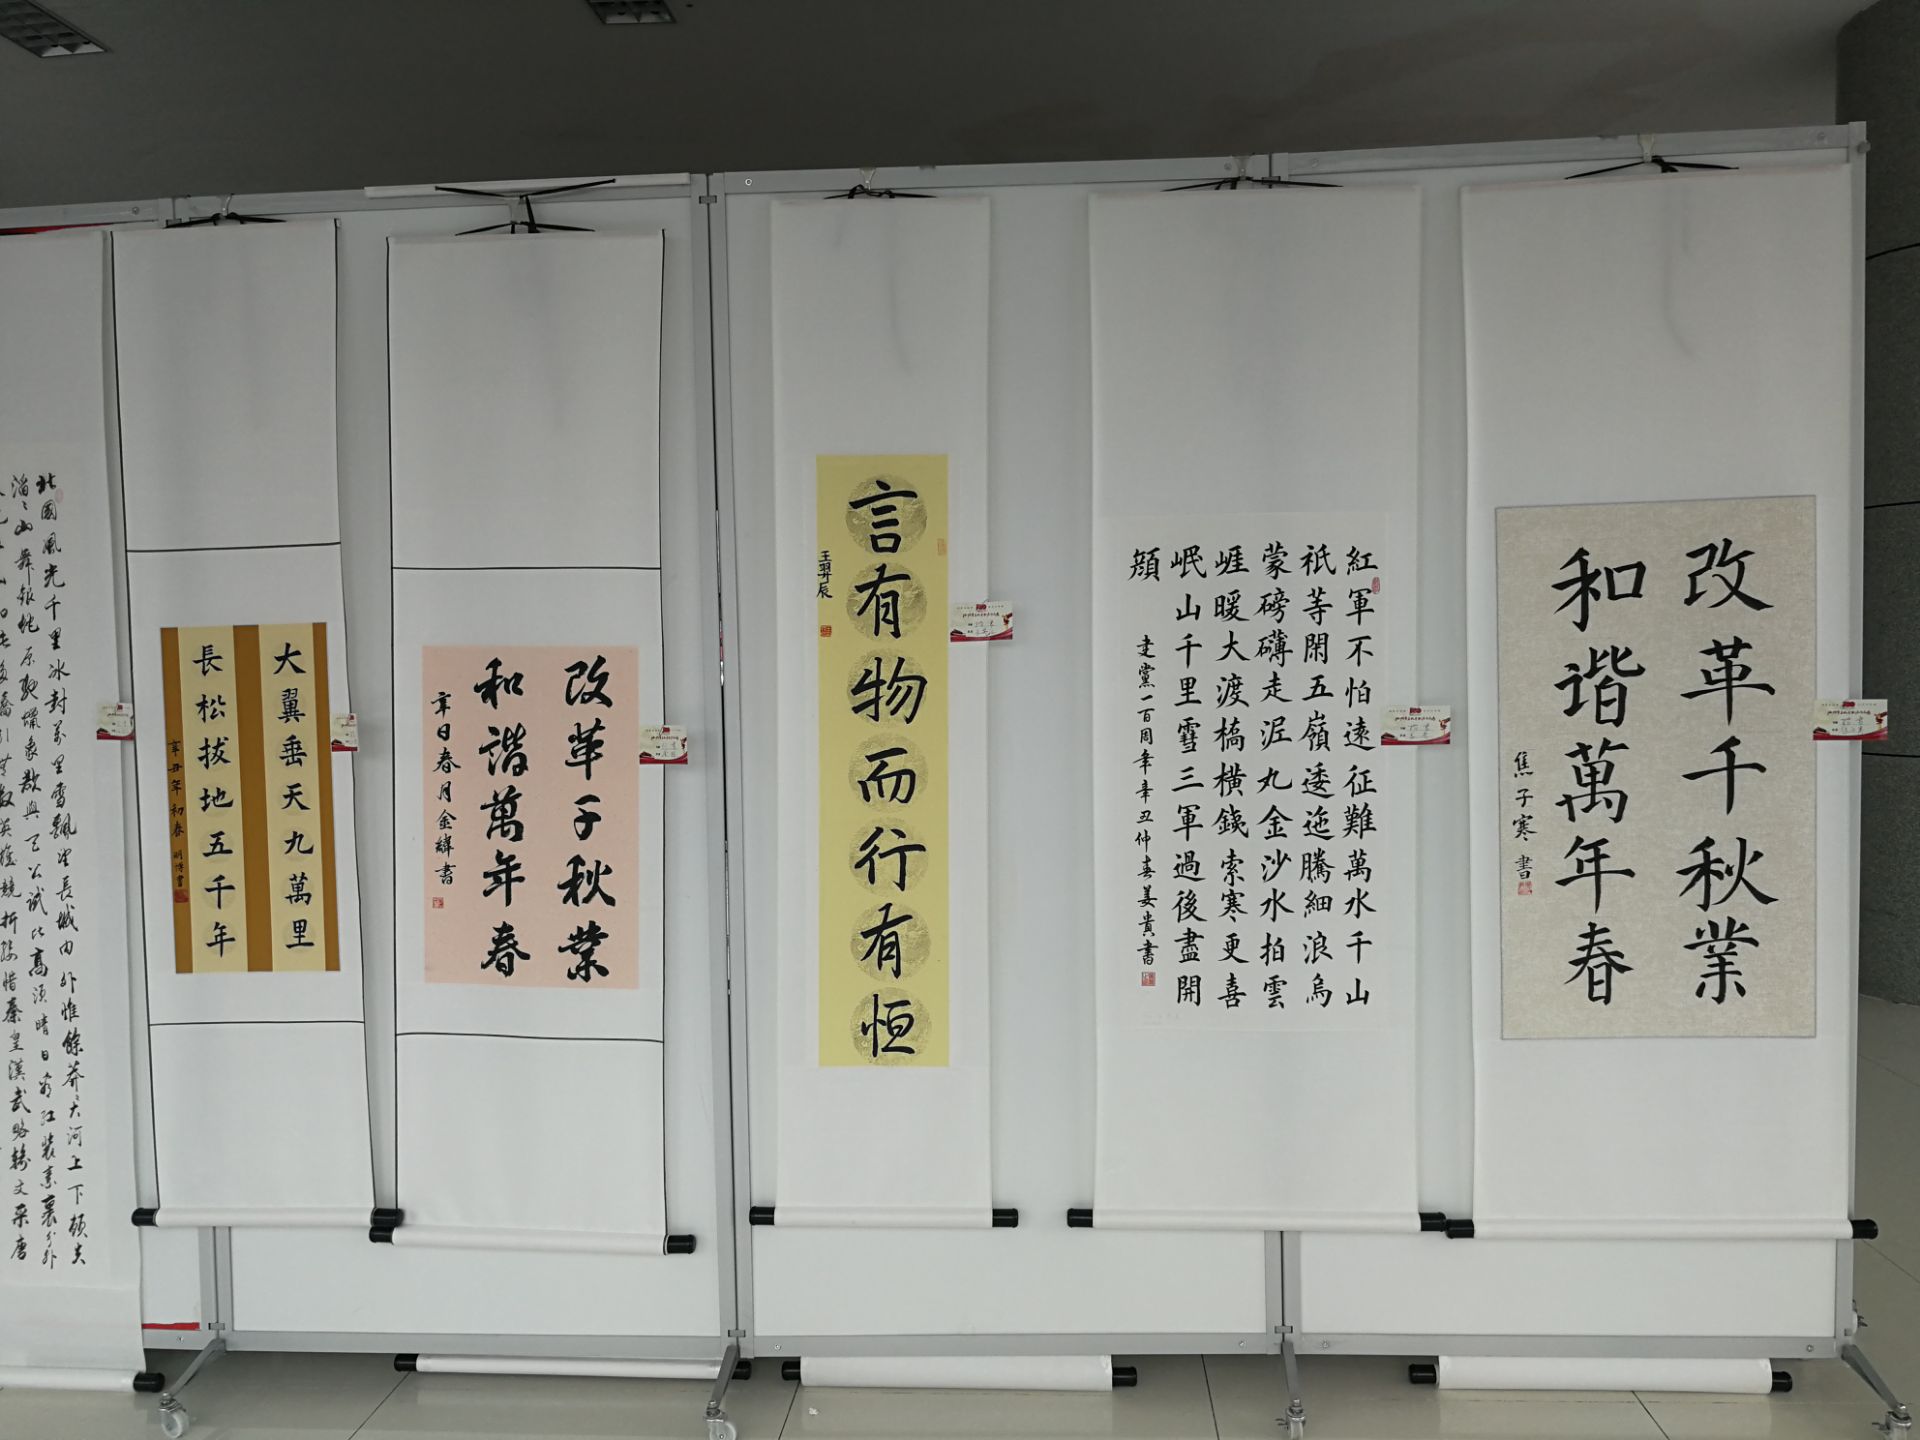 改革千秋業
和谐萬年春
焦子寒書
紅軍不怕遠征難萬水千山
祇等閑五嶺逶迤騰細浪烏
蒙磅礴走泥丸金沙水拍雲
崕暖大渡橋橫鐵索寒更喜
岷山千里雪三軍過後盡開
顔
建黨一百周年辛丑仲春姜貴書
言有物而行有恒
王羿辰
改革千秋業
和諧萬年春
辛日春月金緯書
大翼垂天九萬里
長松拔地五千年
辛丑年初春 明博書
北國風光千里冰封萬里雪飄望長城內外惟餘莽〻大河上下頓失
滔〻山舞銀蛇原馳蠟象欲與天公試比高須晴日看紅裝素裹分外
引無數英雄競折腰惜秦皇漢武略輸文采唐